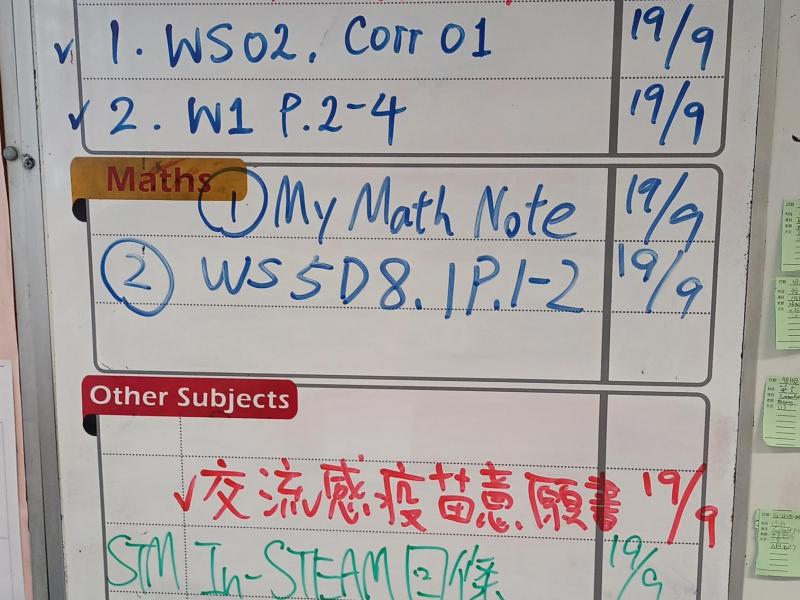 ✓ 1. WS02, Corr 01 19/9
✓ 2. W1 P.2-4 19/9
Maths
① My Math Note 19/9
② WS 5D8.1P.1-2 19/9
Other Subjects
✓交流感疫苗意願書 19/9
STM In-STEAM回條 19/9